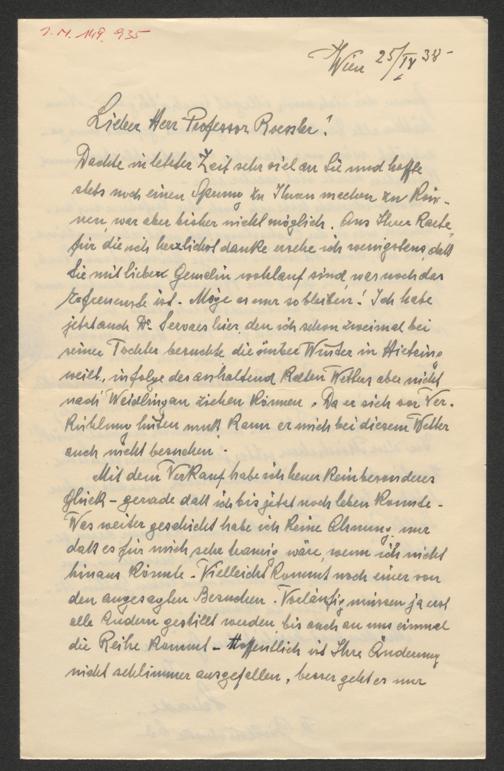 J. N. 149.935
Wien 25/IV 38
Lieber Herr Professor Roessler!
Dachte in letzter Zeit sehr viel an Sie und hoffe
stets noch einen Sprung zu Ihnen machen zu Kön-
nen, war aber bisher nicht möglich. Aus Ihrer Karte,
für die ich herzlichst danke ersehe ich wenigstens, daß
Sie mit lieber Gemalin wohlauf sind, was noch das
Erfreuende ist. Möge es nur so bleiben! Ich habe
jetzt auch Dr. Servaes hier, den ich schon zweimal bei
seiner Tochter besuchte, die über Winter in Hietzing
weilt, infolge des anhaltend Kalten Wetters aber nicht
nach Weidlingau ziehen Können. Da er sich vor Ver-
Kühlung hüten muß Kann er mich bei diesem Wetter
auch nicht besuchen.
Mit dem VerKauf habe ich heuer Kein besonderes
Glück – gerade daß ich bis jetzt noch leben Konnte.
Was weiter geschieht habe ich Keine Ahnung, nur
daß es für mich sehr traurig wäre, wenn ich nicht
hinaus Könnte. Vielleicht Kommt noch einer von
den angesagten Besuchen. Vorläufig müssen ja erst
alle Andern gestillt werden bis auch an uns einmal
die Reihe Kommt – Hoffentlich ist Ihre Änderung
nicht schlimmer ausgefallen, besser geht es nur